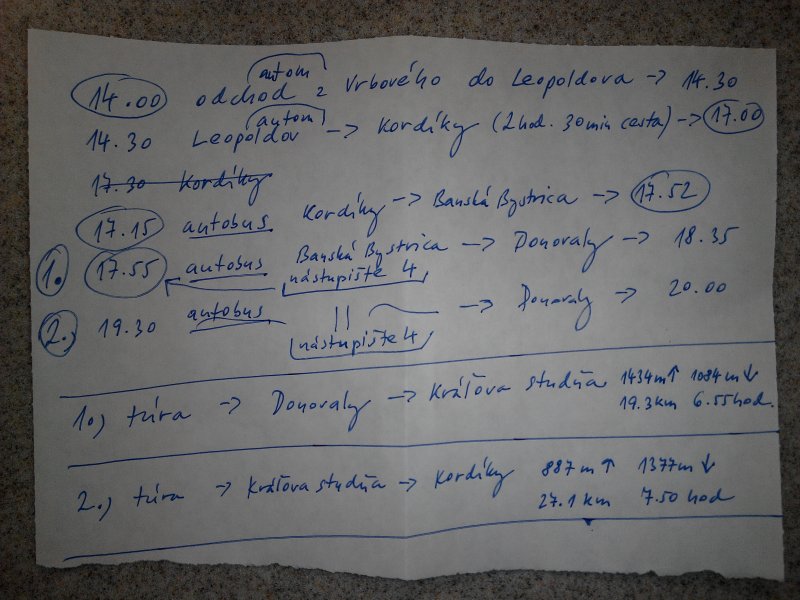 autom
14.00 odchod z Vrbového do Leopoldova -> 14.30
autom
14.30 Leopoldov -> Kordíky (2hod. 30min cesta) -> 17.00
17.30 Kordíky
17.15 autobus Kordíky -> Banská Bystrica -> 17.52
1. 17.55 autobus Banská Bystrica -> Donovaly -> 18.35
nástupište 4
2.) 19.30 autobus || -> Donovaly -> 20.00
nástupište 4
1.) túra -> Donovaly -> Kráľova studňa 1434m↑ 1084m↓
19.3km 6.55hod.
2.) túra -> Kráľova studňa -> Kordíky 887m↑ 1377m↓
27.1km 7.50hod